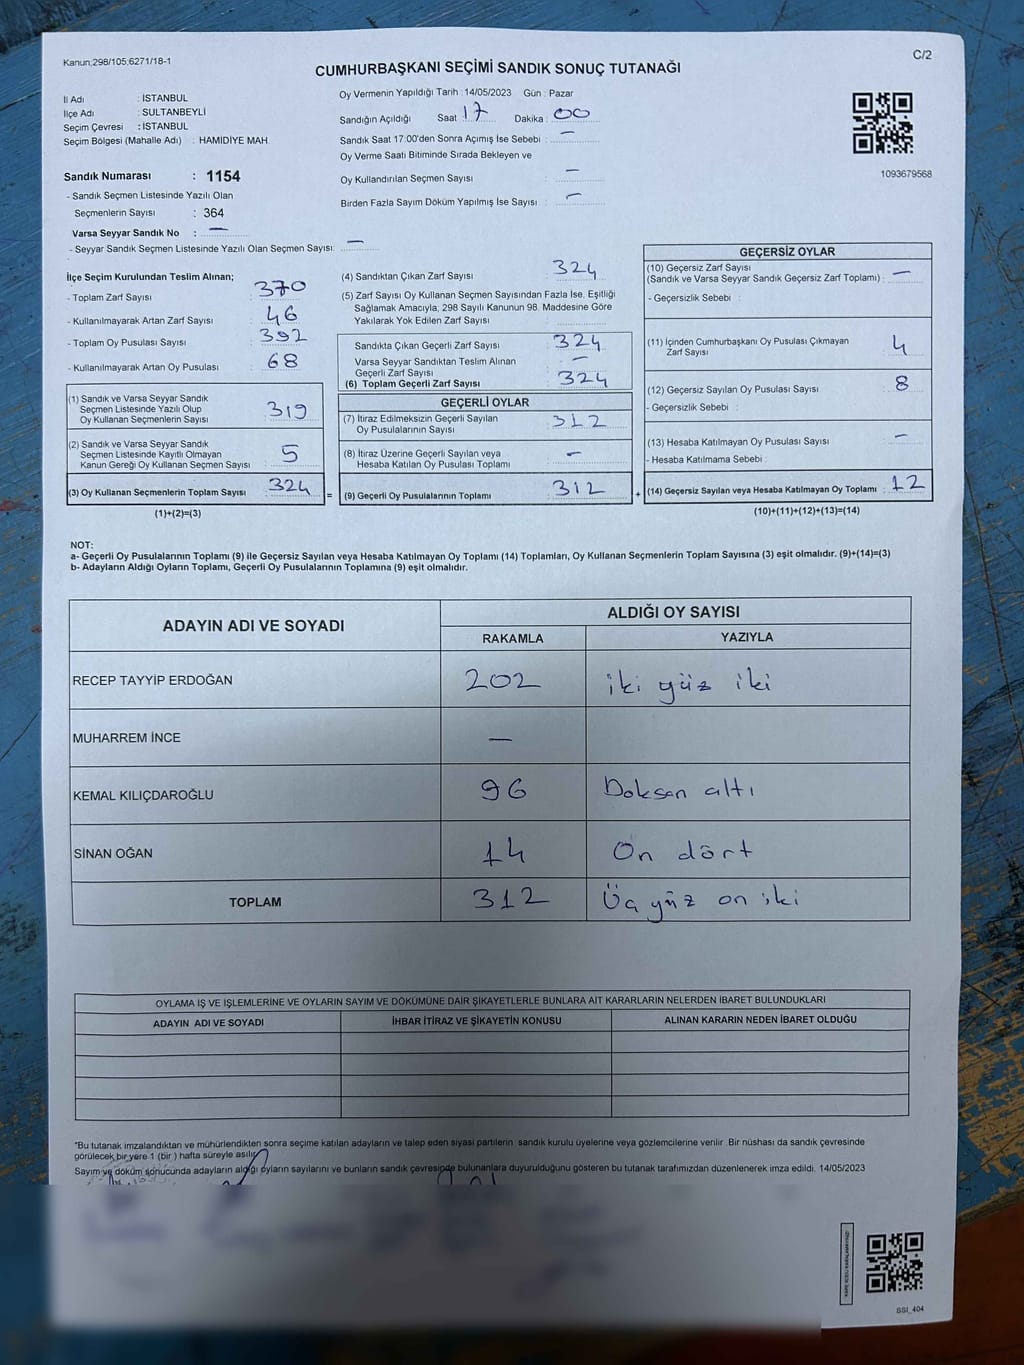 Kanun;298/105;6271/18-1
C/2
CUMHURBAŞKANI SEÇİMİ SANDIK SONUÇ TUTANAĞI
İl Adı : İSTANBUL
İlçe Adı : SULTANBEYLİ
Seçim Çevresi : İSTANBUL
Seçim Bölgesi (Mahalle Adı) : HAMİDİYE MAH.
Sandık Numarası : 1154
- Sandık Seçmen Listesinde Yazılı Olan
Seçmenlerin Sayısı : 364
Varsa Seyyar Sandık No : —
- Seyyar Sandık Seçmen Listesinde Yazılı Olan Seçmen Sayısı: —
Oy Vermenin Yapıldığı Tarih :14/05/2023 Gün : Pazar
Sandığın Açıldığı Saat : 17 Dakika : 00
Sandık Saat 17:00'den Sonra Açımış İse Sebebi : —
Oy Verme Saati Bitiminde Sırada Bekleyen ve
Oy Kullandırılan Seçmen Sayısı : —
Birden Fazla Sayım Döküm Yapılmış İse Sayısı : —
1093679568
İlçe Seçim Kurulundan Teslim Alınan;
- Toplam Zarf Sayısı : 370
- Kullanılmayarak Artan Zarf Sayısı : 46
- Toplam Oy Pusulası Sayısı : 392
- Kullanılmayarak Artan Oy Pusulası : 68
(1) Sandık ve Varsa Seyyar Sandık
Seçmen Listesinde Yazılı Olup
Oy Kullanan Seçmenlerin Sayısı : 319
(2) Sandık ve Varsa Seyyar Sandık
Seçmen Listesinde Kayıtlı Olmayan
Kanun Gereği Oy Kullanan Seçmen Sayısı : 5
(3) Oy Kullanan Seçmenlerin Toplam Sayısı : 324
(1)+(2)=(3)
(4) Sandıktan Çıkan Zarf Sayısı : 324
(5) Zarf Sayısı Oy Kullanan Seçmen Sayısından Fazla İse, Eşitliği
Sağlamak Amacıyla; 298 Sayılı Kanunun 98. Maddesine Göre
Yakılarak Yok Edilen Zarf Sayısı :
Sandıkta Çıkan Geçerli Zarf Sayısı : 324
Varsa Seyyar Sandıktan Teslim Alınan
Geçerli Zarf Sayısı : —
(6) Toplam Geçerli Zarf Sayısı : 324
GEÇERLİ OYLAR
(7) İtiraz Edilmeksizin Geçerli Sayılan
Oy Pusulalarının Sayısı : 312
(8) İtiraz Üzerine Geçerli Sayılan veya
Hesaba Katılan Oy Pusulası Toplamı : —
= (9) Geçerli Oy Pusulalarının Toplamı : 312 +
GEÇERSİZ OYLAR
(10) Geçersiz Zarf Sayısı
(Sandık ve Varsa Seyyar Sandık Geçersiz Zarf Toplamı) : —
- Geçersizlik Sebebi :
(11) İçinden Cumhurbaşkanı Oy Pusulası Çıkmayan
Zarf Sayısı : 4
(12) Geçersiz Sayılan Oy Pusulası Sayısı : 8
- Geçersizlik Sebebi :
(13) Hesaba Katılmayan Oy Pusulası Sayısı : —
- Hesaba Katılmama Sebebi :
(14) Geçersiz Sayılan veya Hesaba Katılmayan Oy Toplamı : 12
(10)+(11)+(12)+(13)=(14)
NOT:
a- Geçerli Oy Pusulalarının Toplamı (9) ile Geçersiz Sayılan veya Hesaba Katılmayan Oy Toplamı (14) Toplamları, Oy Kullanan Seçmenlerin Toplam Sayısına (3) eşit olmalıdır. (9)+(14)=(3)
b- Adayların Aldığı Oyların Toplamı, Geçerli Oy Pusulalarının Toplamına (9) eşit olmalıdır.
ADAYIN ADI VE SOYADI
ALDIĞI OY SAYISI
RAKAMLA YAZIYLA
RECEP TAYYİP ERDOĞAN 202 iki yüz iki
MUHARREM İNCE —
KEMAL KILIÇDAROĞLU 96 Doksan altı
SİNAN OĞAN 14 On dört
TOPLAM 312 Üç yüz on iki
OYLAMA İŞ VE İŞLEMLERİNE VE OYLARIN SAYIM VE DÖKÜMÜNE DAİR ŞİKAYETLERLE BUNLARA AİT KARARLARIN NELERDEN İBARET BULUNDUKLARI
ADAYIN ADI VE SOYADI İHBAR İTİRAZ VE ŞİKAYETİN KONUSU ALINAN KARARIN NEDEN İBARET OLDUĞU
"Bu tutanak imzalandıktan ve mühürlendikten sonra seçime katılan adayların ve talep eden siyasi partilerin sandık kurulu üyelerine veya gözlemcilerine verilir. Bir nüshası da sandık çevresinde
görülecek bir yere 1 (bir ) hafta süreyle asılır.
Sayım ve döküm sonucunda adayların aldığı oyların sayılarını ve bunların sandık çevresinde bulunanlara duyurulduğunu gösteren bu tutanak tarafımızdan düzenlenerek imza edildi. 14/05/2023
SSI_404